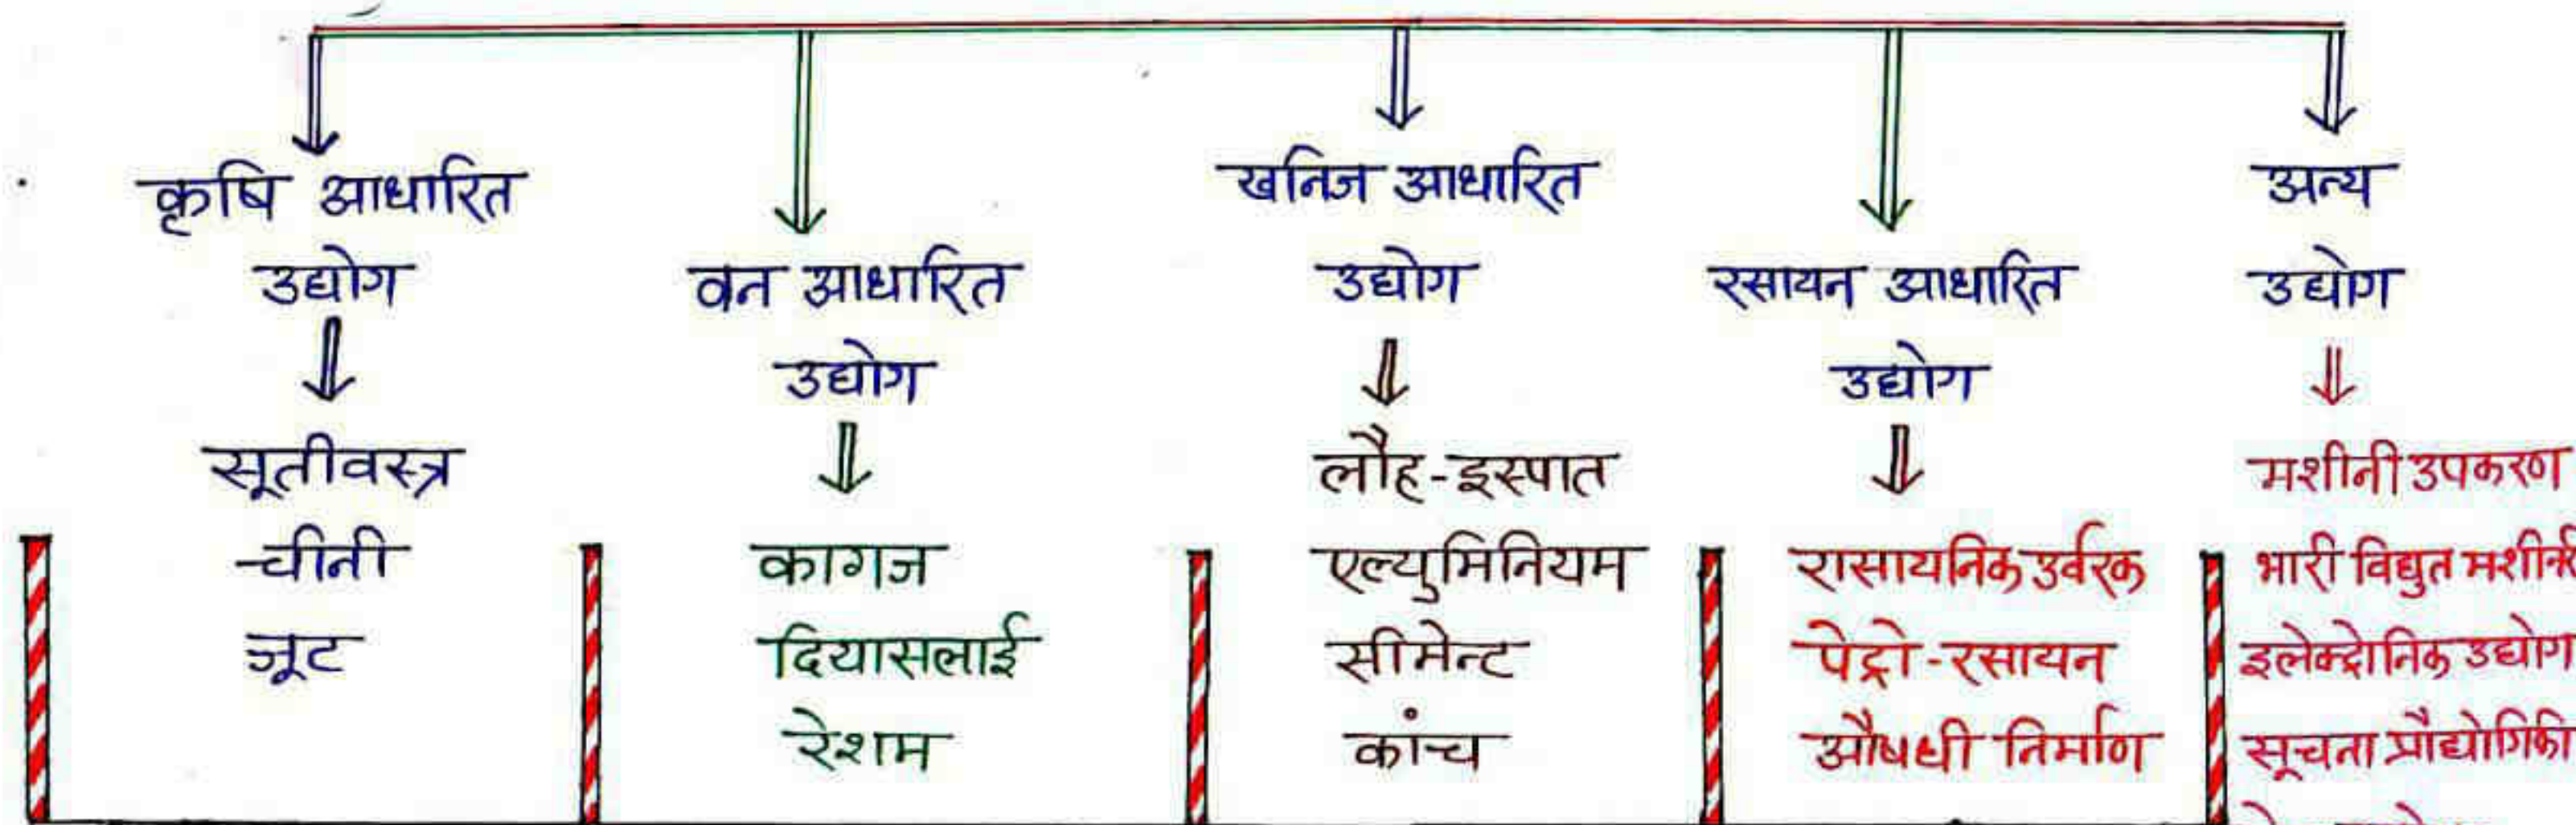 कृषि आधारित
उद्योग
सूतीवस्त्र
चीनी
जूट
वन आधारित
उद्योग
कागज
दियासलाई
रेशम
खनिज आधारित
उद्योग
लौह-इस्पात
एल्युमिनियम
सीमेन्ट
कांच
रसायन आधारित
उद्योग
रासायनिक उर्वरक
पेट्रो-रसायन
औषधी निर्माण
अन्य
उद्योग
मशीनी उपकरण
भारी विद्युत मशीनरी
इलेक्ट्रोनिक उद्योग
सूचना प्रौद्योगिकी